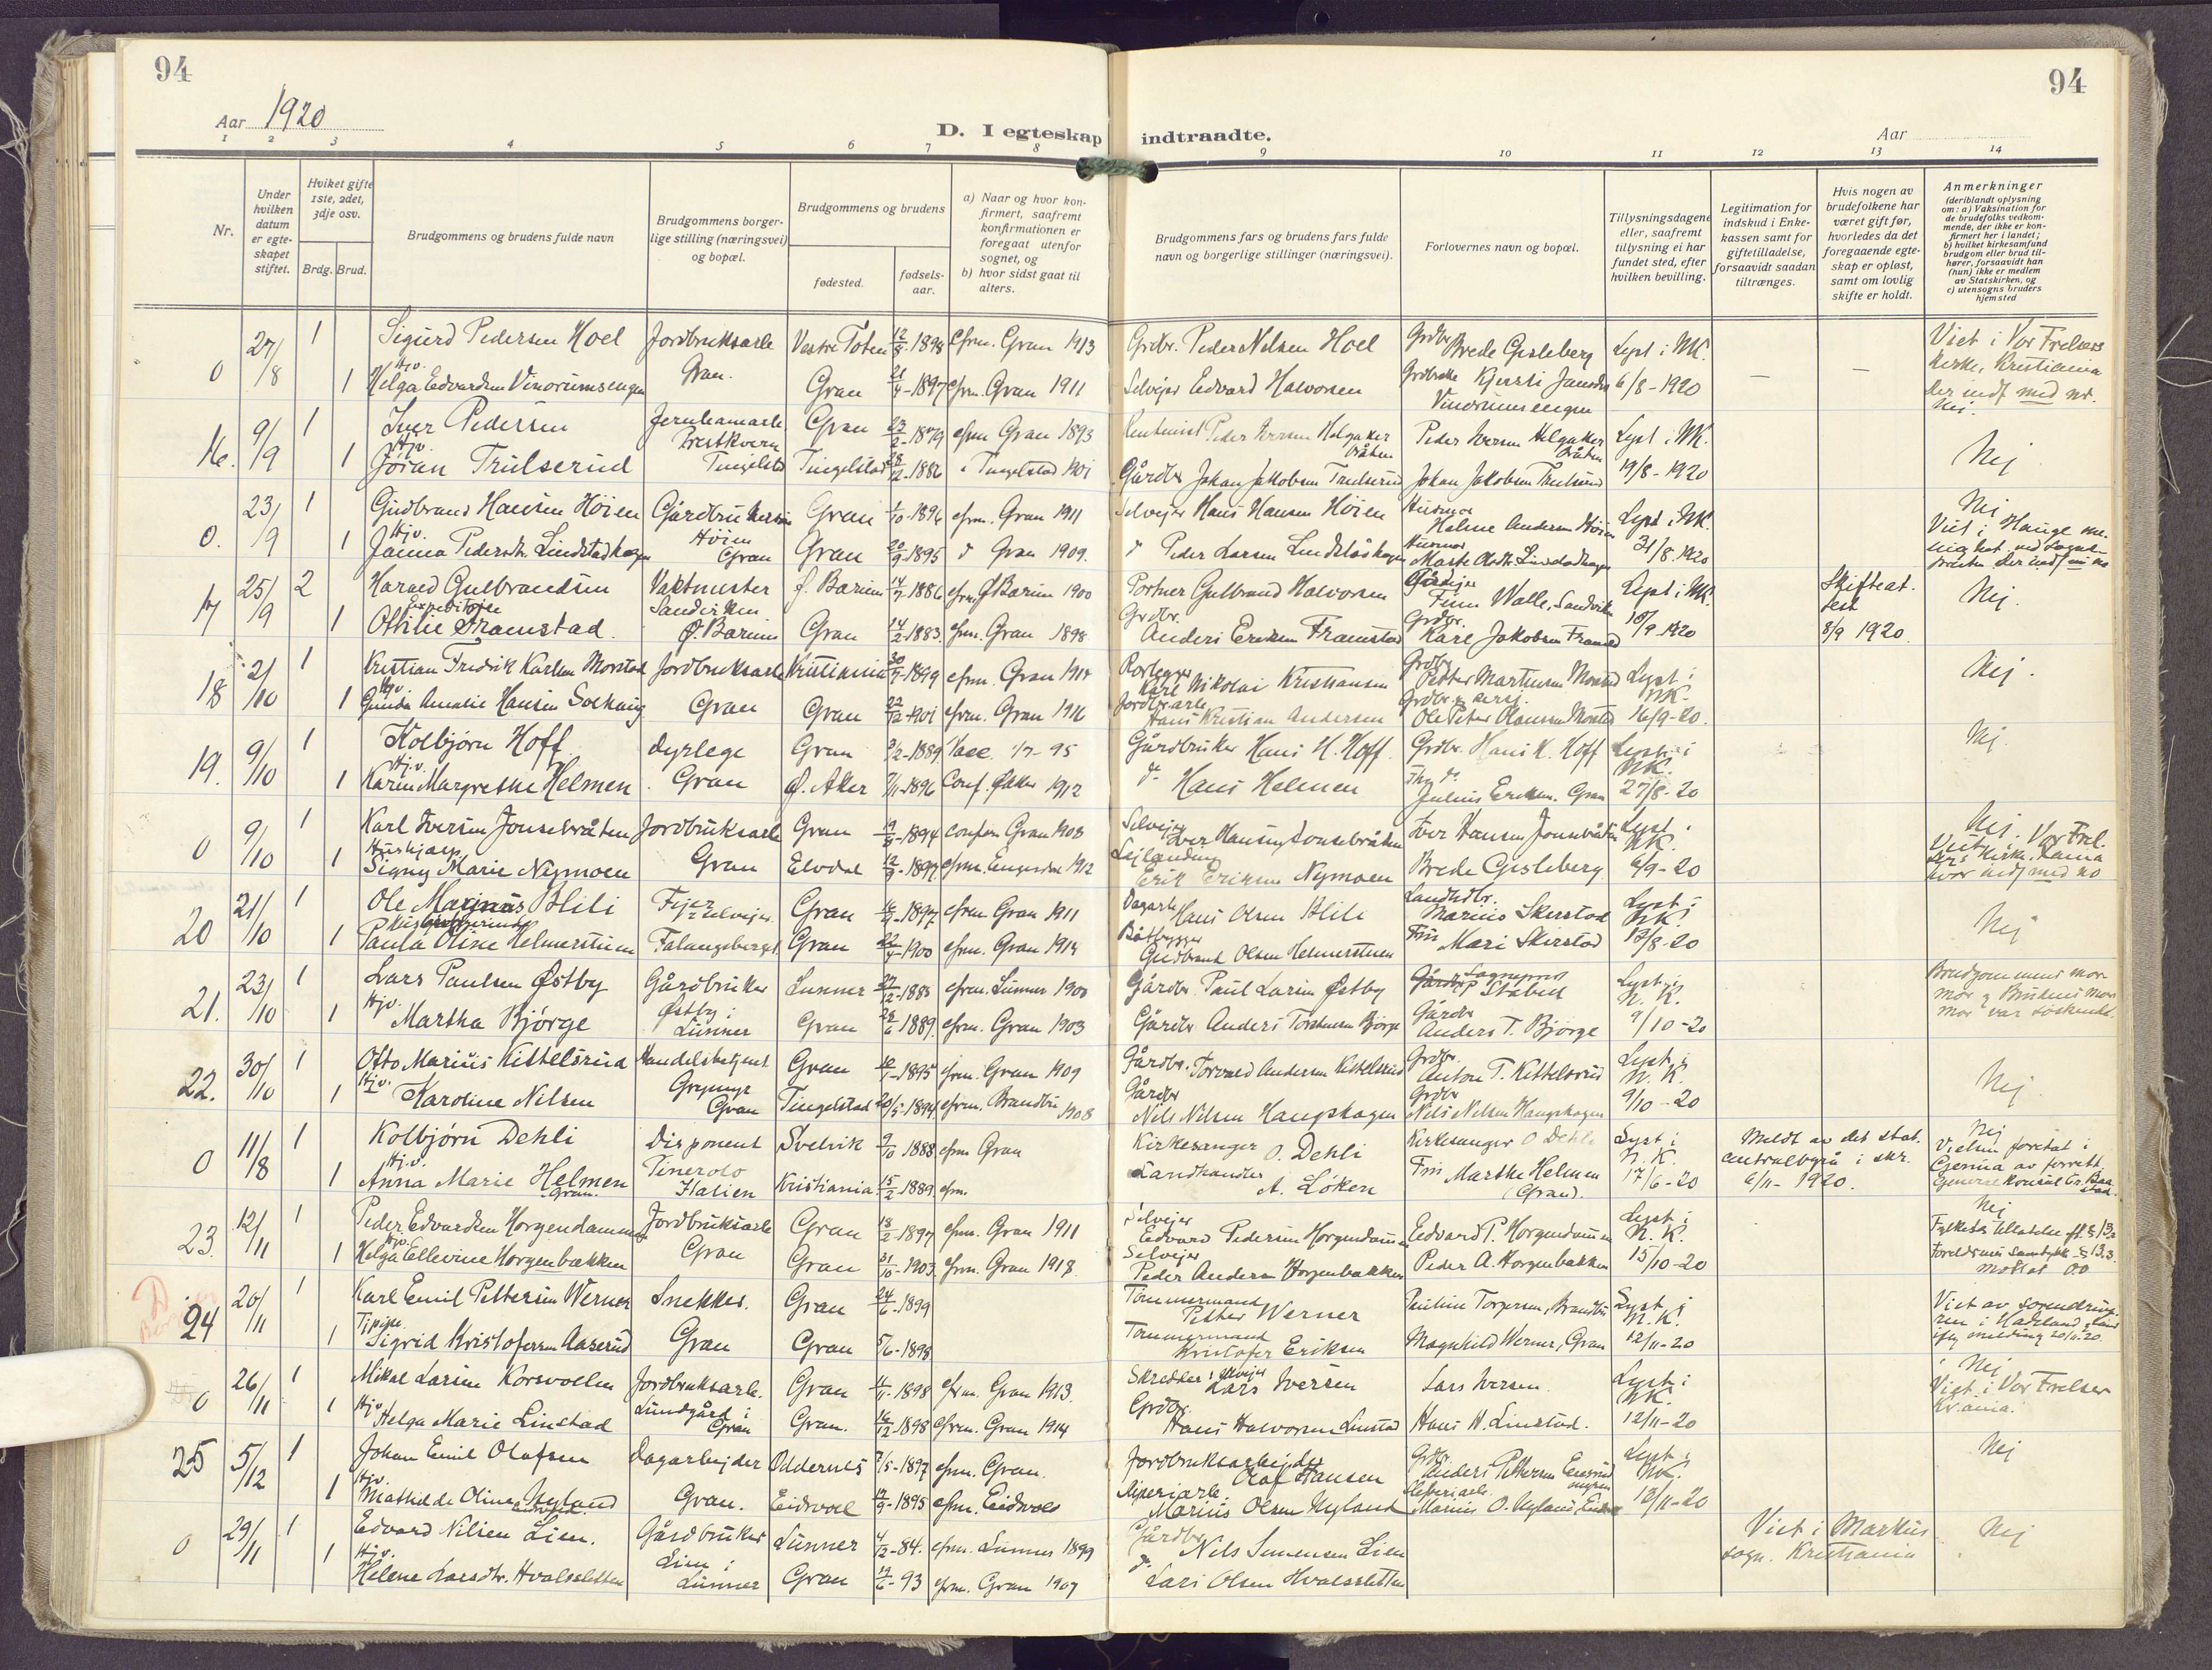 94
Aar 1920
D. I egteskap indtraadte.
94
Aar
1 2 3 4 5 6 7 8 9 10 11 12 13 14
Nr.
Under hvilken datum er egteskapet stiftet.
Hviket gifte 1ste, 2det, 3dje osv.
Brdg. Brud.
Brudgommens og brudens fulde navn
Brudgommens borgerlige stilling (næringsvei) og bopæl.
Brudgommens og brudens
fødested.
fødselsaar.
a) Naar og hvor konfirmert, saafremt konfirmationen er foregaat utenfor sognet, og
b) hvor sidst gaat til alters.
Brudgommens fars og brudens fars fulde navn og borgerlige stillinger (næringsvei).
Forlovernes navn og bopæl.
Tillysningsdagene eller, saafremt tillysning ei har fundet sted, efter hvilken bevilling.
Legitimation for indskud i Enkekassen samt for giftetilladelse, forsaavidt saadan tiltrænges.
Hvis nogen av brudefolkene har været gift før, hvorledes da det foregaaende egteskap er opløst, samt om lovlig skifte er holdt.
Anmerkninger (deriblandt oplysning om: a) Vaksination for de brudefolks vedkommende, der ikke er konfirmert her i landet; b) hvilket kirkesamfund brudgom eller brud tilhører, forsaavidt han (hun) ikke er medlem av Statskirken, og c) utensogns bruders hjemsted
0 27/8 1 Sigurd Pedersen Hoel Jordbruksarb. Vestre Toten 12/8-1898 cfrm. Gran 1913 Grdbr. Peder Nelsen Hoel Grdbr Brede Gisleberg Lyst i NK. Viet i Vor Frelsers
1 Hjv. Helga Edvardsen Vinorumsengen Gran. Gran 21/4-1897 cfrm. Gran 1911 Selvejer Edvard Halvorsen Kjersti Vindrumsengen 6/8-1920 — — kirke, Kristiania
16. 9/9 1 Iver Pedersen Jernbanearb. Gran 27/2-1879 cfrm Gran 1893 Peder Iversen Helgaker Peder Iversen Helgaker Lyst i NK.
1 Hjv. Jöran Trulserud Tingelstad Tingelstad 1886 i Tingelstad 1901 Gårdbr Johan Jakobsen Trulserud Johan Jakobsen Trulserud 19/8-1920 Nej
0. 23/9 1 Gudbrand Hansen Höien Gårdbruker Gran 1/10-1896 cfrm. Gran 1911 Selvejer Hans Hansen Höien Helene Andersen Höien Lyst i NK. Nej
1 Hjv. Janna Pedersdtr. Lindstadhagen Höien Gran Gran 20/9-1895 d Gran 1909. d Peder Larsen Lindstadhagen 31/8.1920 Viet i Hauge
17 25/9 2 Harald Gulbrandsen Vaktmester Ø. Bærum 14/7-1886 cfrm. Ø. Bærum 1900 Portner Gulbrand Halvorsen Finn Walle, Sandviken Lyst i NK. Skifteattest Nej.
1 Othilie Framstad. Sandviken Ø. Bærum Gran 14/2-1883. cfrm. Gran 1898 Grdbr. Anders Eriksen Framstad Grdbr. Kare Jakobsen Framstad 10/9 1920 8/9 1920.
18 2/10 1 Kristian Fredrik Karlsen Morstad Jordbruksarb. Kristiania 30/7-1899 cfrm. Gran 1914 Karl Nikolai Kristiansen Petter Martinsen Morstad Lyst i NK. Nej.
1 Gunda Amalie Hansen Gran Gran 22/12-1901 cfrm. Gran 1916 Jordbr.arb. Hans Kristian Andersen Ole Peter Olaussen Morstad 16/9-20.
19. 9/10 1 Kolbjörn Hoff dyrlege Gran 9/2-1889 Vacc. 1/7-95 Gårdbruker Hans H. Hoff. Grdbr. Hans K. Hoff Lyst i NK. Nej.
1 Hjv. Karen Margrethe Helmen Gran Ø. Aker 7/11-1896 Conf. Ø. Aker 1912 d- Hans Helmen Julius Eriksen. Gran 27/8-20
0 9/10 1 Karl Iversen Jonsebråten Jordbruksarb. Gran 1894 confirm Gran 1908 Selvejer Iver Hansen Jonsebråten Iver Hansen Jonsebråten Lyst i NK. Nej.
1 Signy Marie Nymoen Gran Elvdal 1897 cfrm. Engerdal 1912 Erik Eriksen Nymoen Brede Gisleberg 6/9-20 Viet i Vor Frel. kirke
20 21/10 1 Ole Marinus Blili Gran 1897 cfrm Gran 1911 Dagarb Hans Olsen Blili Landhdlr. Marius Skirstad Lyst i NK. Nej
1 Paula Oline Helmerstuen Falangsberget Gran 1900 cfrm. Gran 1914 Båtbygger Gudbrand Olsen Helmerstuen Mari Skirstad 13/8-20
21. 23/10 1 Lars Paulsen Østby Gårdbruker Lunner 27/12-1885 cfrm. Lunner 1900 Gårdbr. Paul Larsen Østby Sogneprest Stabell Lyst i N.K. Brudgommens mor-
1 Hjv. Martha Bjørge Østby i Lunner Gran 28/6-1889. cfrm. Gran 1903 Gårdbr Anders Torstensen Bjørge Gårdbr Anders T. Bjørge 9/10-20 mor og Brudens mor-
mor var søskende.
22. 30/10 1 Otto Marius Kittelsrud Handelsbetjent Gran 1895 cfrm. Gran 1909 Gårdbr. Torvald Andersen Kittelsrud Grdbr. Anton T. Kittelsrud Lyst i N.K. Nej.
1 Hjv. Karoline Nilsen Grymyr Gran Tingelstad 20/5-1894 cfrm. Brandbu 1908 Gårdbr Nils Nilsen Haugshagen Grdbr Nils Nilsen Haugshagen 9/10-20
0 11/8 1 Kolbjørn Dehli Disponent Svelvik 9/10 1888 cfrm Gran Kirkesanger O. Dehli Kirkesanger O Dehli Lyst i N.K. Meldt av det stat. Nej
1 Hjv. Anna Marie Helmen Gran. Pinerolo Italien Kristiania 15/2-1889. cfrm. Landhandler A. Løken Marthe Helmen (Gran). 17/6-20 centralbyrå i skr. 6/11-1920. Vielsen foretat i Genua av
23. 12/11 1 Peder Edvardsen Horgendammen Jordbruksarb Gran 18/2-1897 cfrm. Gran 1911 Selvejer Edvard Pedersen Horgendammen Edvard P. Horgendammen Lyst i N.K. Nej
1 Hjv. Helga Ellevine Horgenbakken Gran Gran 31/10-1903. cfrm. Gran 1918 Selvejer Peder Andersen Horgenbakken Peder A. Horgenbakken 15/10-20
24 20/11 1 Karl Emil Pettersen Werner Snekker. Gran 24/6-1899 Tømmermand Petter Werner Torgersen, Brandbu Lyst i N.K. Viet av sorenskriveren
1 Sigrid Kristofersen Aaserud Gran Gran 5/6-1898 Tømmermand Kristofer Eriksen Magnhild Werner, Gran 12/11-20 i Hadeland
0 26/11 1 Mikal Larsen Korsvollen Jordbruksarb. Gran 1898 cfrm. Gran 1913. Lars Iversen Lars Iversen. Lyst i NK. Nej
1 Hjv Helga Marie Linstad Lundgård i Gran Gran. 1898 cfrm. Gran 1914 Grdbr. Hans Halvorsen Linstad Hans H. Linstad. 12/11-20 Viet i Vor Frelser Kr.ania.
25 5/12 1 Johan Emil Olafsen Dagarbejder Oddernes 7/5-1897 cfrm. Gran. Jordbruksarbejder Olaf Hansen Grdbr. Anders Pettersen Lyst i NK. Nej
1 Hjv. Mathilde Oline Nyland Gran. Eidsvoll 17/9-1895 cfrm. Eidsvold Marius Olsen Nyland Marius O. Nyland 13/11-20
0 29/11 1 Edvard Nilsen Lien. Gårdbruker Lunner 4/2-84. cfrm. Lunner 1899 Gårdbr Nils Simensen Lien Viet i Markus Nej
1 Hjv. Helene Larsdtr. Hvalssletten Lien i Lunner Gran 17/6-93 cfrm. Gran 1907 d- Lars Olsen Hvalssletten sogn. Kristiania